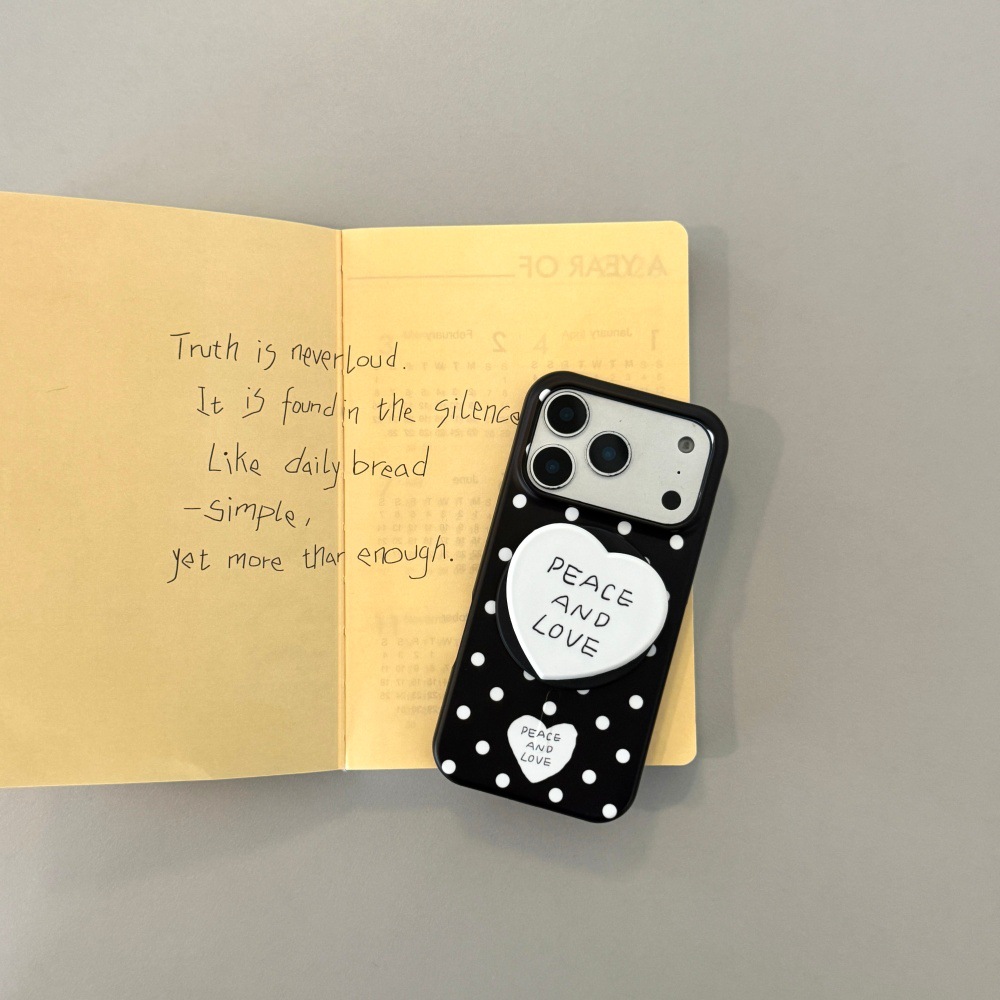 Truth is never loud.
It is found in the silence
Like daily bread
-simple,
yet more than enough.
A YEAR OF
1 January
2 February
June
PEACE
AND
LOVE
PEACE
AND
LOVE